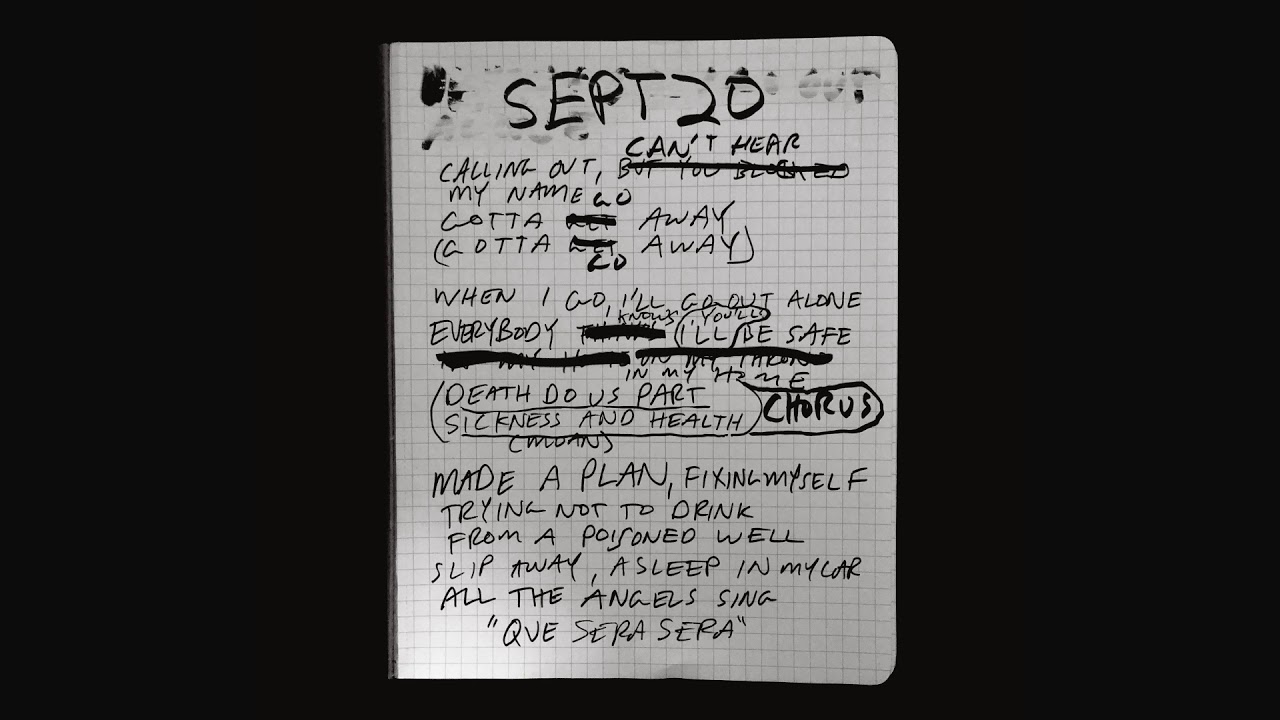 SEPT 20
CAN'T HEAR
CALLING OUT, BUT YOU BLOCKED
MY NAME GO
GOTTA GET AWAY
(GOTTA GET AWAY)
GO
WHEN I GO, I'LL GO OUT ALONE
KNOWS YOU'LL
EVERYBODY (I'LL BE SAFE
ON MY THRONE
IN MY HOME
(DEATH DO US PART
SICKNESS AND HEALTH) CHORUS
(MOAN)
MADE A PLAN, FIXING MYSELF
TRYING NOT TO DRINK
FROM A POISONED WELL
SLIP AWAY, ASLEEP IN MY CAR
ALL THE ANGELS SING
"QUE SERA SERA"